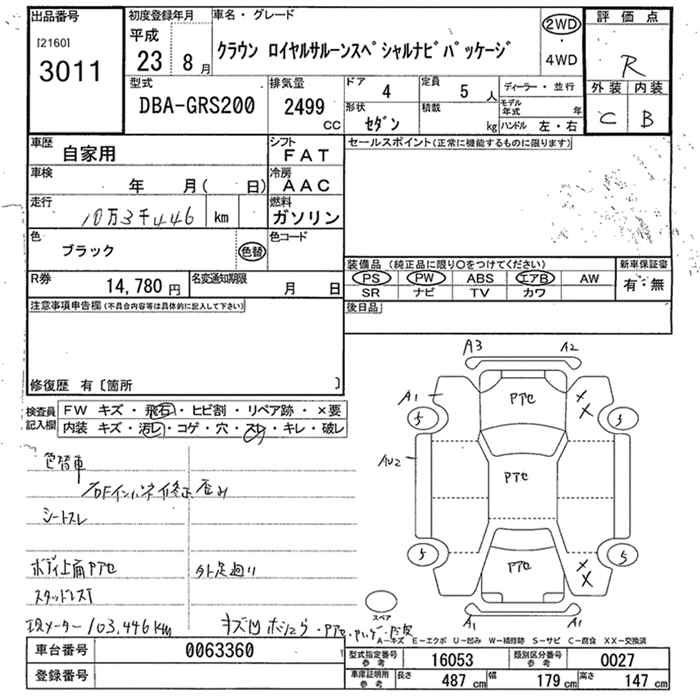 出品番号 初度登録年月 車名・グレード 2WD 評価点
[2160] 平成
3011 23 8月 クラウン ロイヤルサルーンスペシャルナビパッケージ ・ 4WD R
型式 排気量 ドア 4 定員 5人 ディーラー・並行 外装 内装
DBA-GRS200 2499 CC 形状 セダン 積載 kg モデル年式 年 C B
ハンドル 左・右
車歴 自家用 シフト FAT セールスポイント(正常に機能するものに限ります)
車検 年 月( 日) 冷房 AAC
走行 10万3千446 km 燃料 ガソリン
色 ブラック 色替 色コード
装備品 (純正品に限り〇をつけてください) 新車保証書
R券 14,780円 名変通知期限 月 日 PS PW ABS エアB AW 有・無
SR ナビ TV カワ
注意事項申告欄(不具合内容等は具体的に記入して下さい) 後日品
修復歴 有〔箇所 〕
A3 A2
検査員記入欄 FW キズ・飛石・ヒビ割・リペア跡・×要
内装 キズ・汚レ・コゲ・穴・スレ・キレ・破レ
A1 5 Pアセ XX 5
AU2 Pアセ
5 Pアセ XX 5
A1 A1
色替車
右Fインパネ修正歪み
シートスレ
ボディ上面Pアセ 外下足廻り
スタッドレスT
現メーター103,446KM
スペア
A−キズ E−エクボ U−凹み W−補修跡 S−サビ C−腐食 XX−交換済
車台番号 0063360 型式指定番号 参考 16053 類別区分番号 参考 0027
登録番号 車庫証明用 参考 長さ 487cm 幅 179cm 高さ 147cm